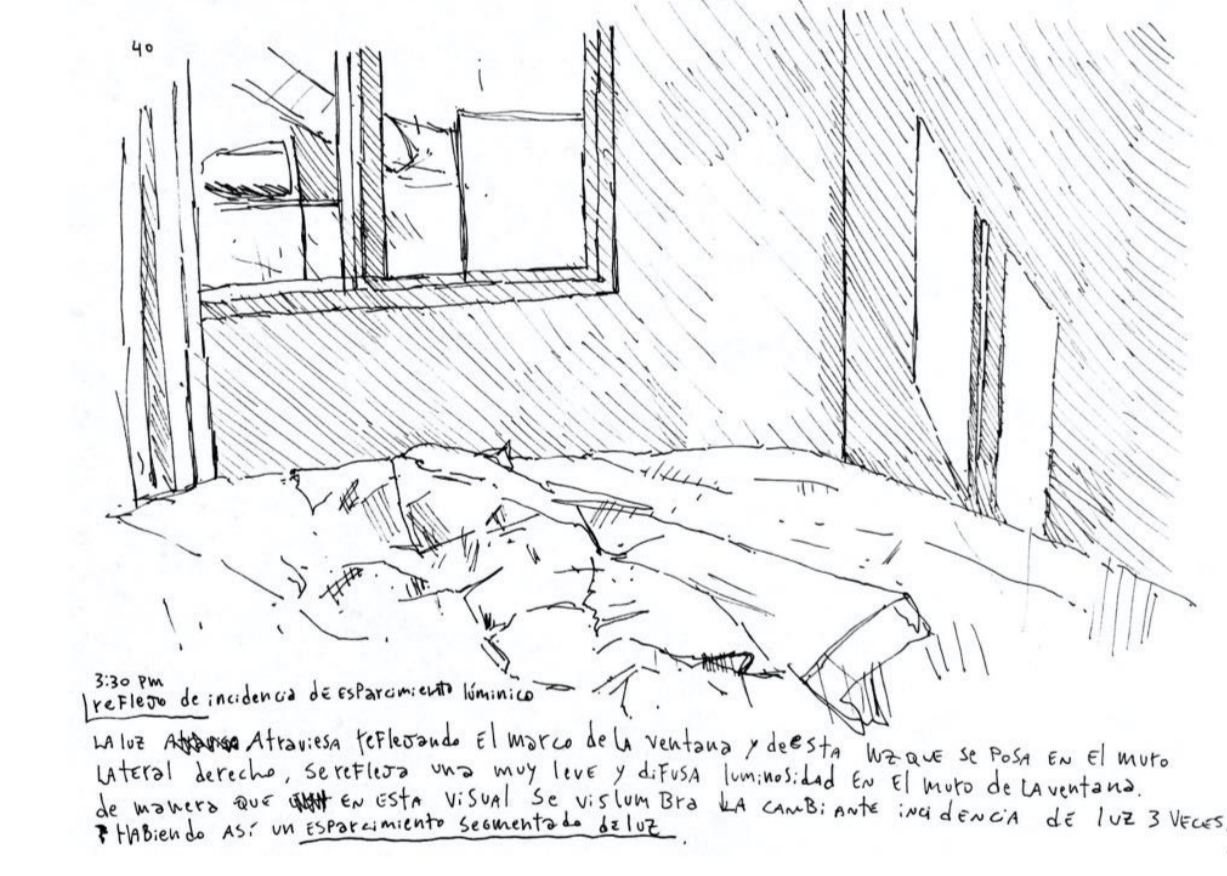 40
3:30 pm
reflejo de incidencia de esparcimiento lúminico
LA luz Atraviesa reflejando El marco de la ventana y de esta luz que se posa en el muro
lateral derecho, se refleja una muy leve y difusa luminosidad en el muro de la ventana.
de manera que en esta visual se vislumbra la cambiante incidencia de luz 3 veces.
Habiendo así un esparcimiento segmentado de luz.